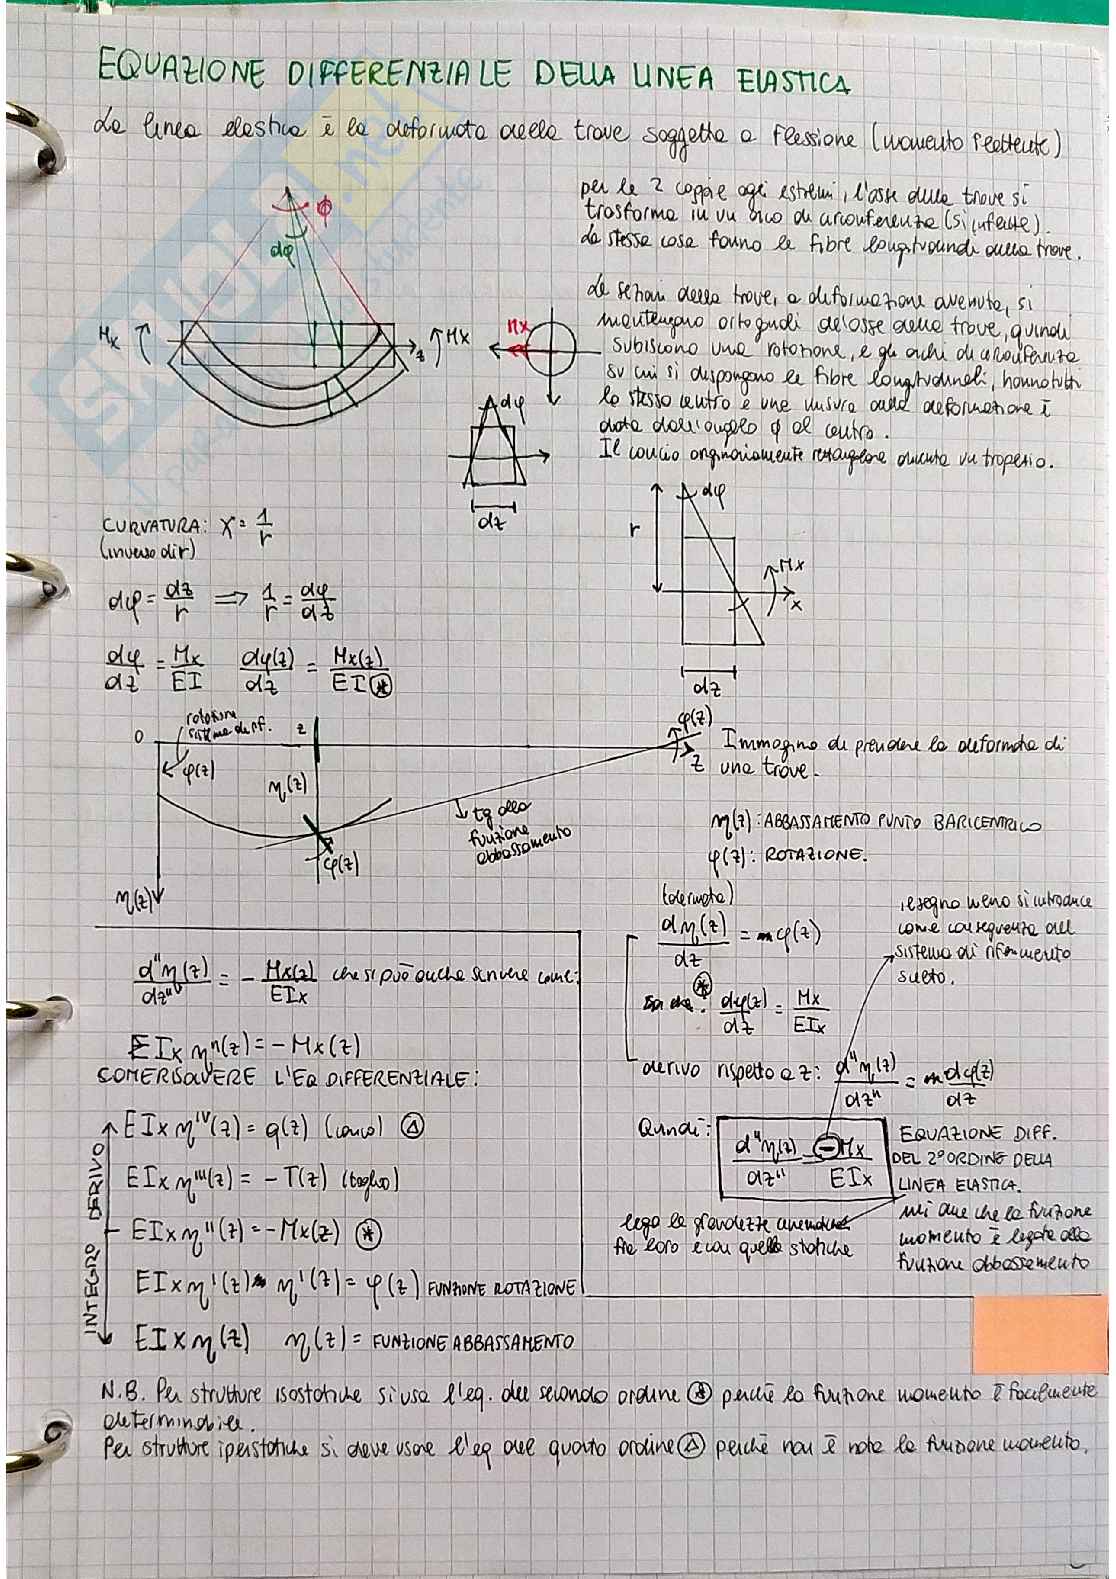 EQUAZIONE DIFFERENZIALE DELLA LINEA ELASTICA
La linea elastica è la deformata della trave soggetta a flessione (momento flettente)
per le 2 coppie agli estremi, l'asse della trave si
trasforma in un arco di circonferenza (si inflette).
La stessa cosa fanno le fibre longitudinali della trave.
ϕ
dφ
Mx
z
Mx
Mx
Le sezioni della trave, a deformazione avvenuta, si
mantengono ortogonali all'asse della trave, quindi
subiscono una rotazione, e gli archi di circonferenza
su cui si dispongono le fibre longitudinali, hanno tutti
lo stesso centro e una misura della deformazione è
data dall'angolo φ al centro.
Il concio originariamente rettangolare diventa un trapezio.
dφ
dz
dφ
r
Mx
x
dz
CURVATURA: χ = 1/r
(inverso di r)
dφ = dz/r ⟹ 1/r = dφ/dz
dφ/dz = Mx/EI dφ(z)/dz = Mx(z)/EI ⊛
rotazione
sistema di rif.
0
z
φ(z)
η(z)
φ(z)
z
φ(z)
η(z)
tg alla
funzione
abbassamento
Immagino di prendere la deformata di
una trave.
η(z): ABBASSAMENTO PUNTO BARICENTRICO
φ(z): ROTAZIONE.
(derivata)
dη(z)/dz = φ(z)
⊛ dφ(z)/dz = Mx/EIx
derivo rispetto a z: d"η(z)/dz" = dφ(z)/dz
Quindi: d"η(z)/dz" = - Mx/EIx
il segno meno si introduce
come conseguenza del
sistema di riferimento
scelto.
EQUAZIONE DIFF.
DEL 2° ORDINE DELLA
LINEA ELASTICA.
mi dice che la funzione
momento è legata alla
funzione abbassamento
lega le grandezze cinematiche
fra loro e con quelle statiche
d"η(z)/dz" = - Mx(z)/EIx che si può anche scrivere come:
EIx η"(z) = - Mx(z)
COME RISOLVERE L'EQ DIFFERENZIALE:
INTEGRO DERIVO
EIx η^IV(z) = q(z) (carico) Δ
EIx η'''(z) = - T(z) (taglio)
EIx η''(z) = - Mx(z) ⊛
EIx η'(z) η'(z) = φ(z) FUNZIONE ROTAZIONE
EIx η(z) η(z) = FUNZIONE ABBASSAMENTO
N.B. Per strutture isostatiche si usa l'eq. del secondo ordine ⊛ perché la funzione momento è facilmente
determinabile.
Per strutture iperstatiche si deve usare l'eq del quarto ordine Δ perchè non è nota la funzione momento.